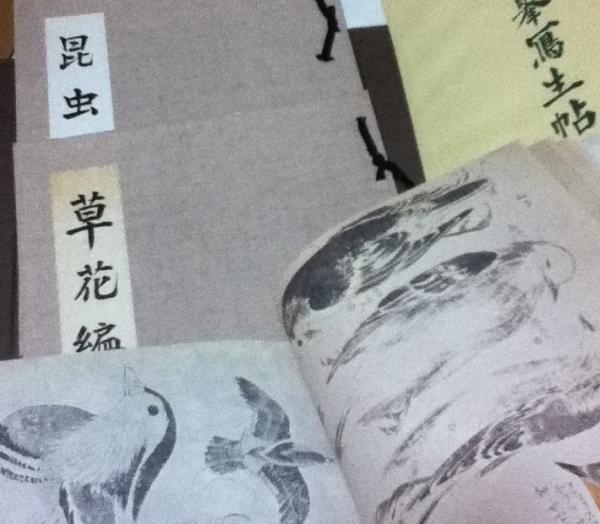 昆虫
草花編
寫生帖